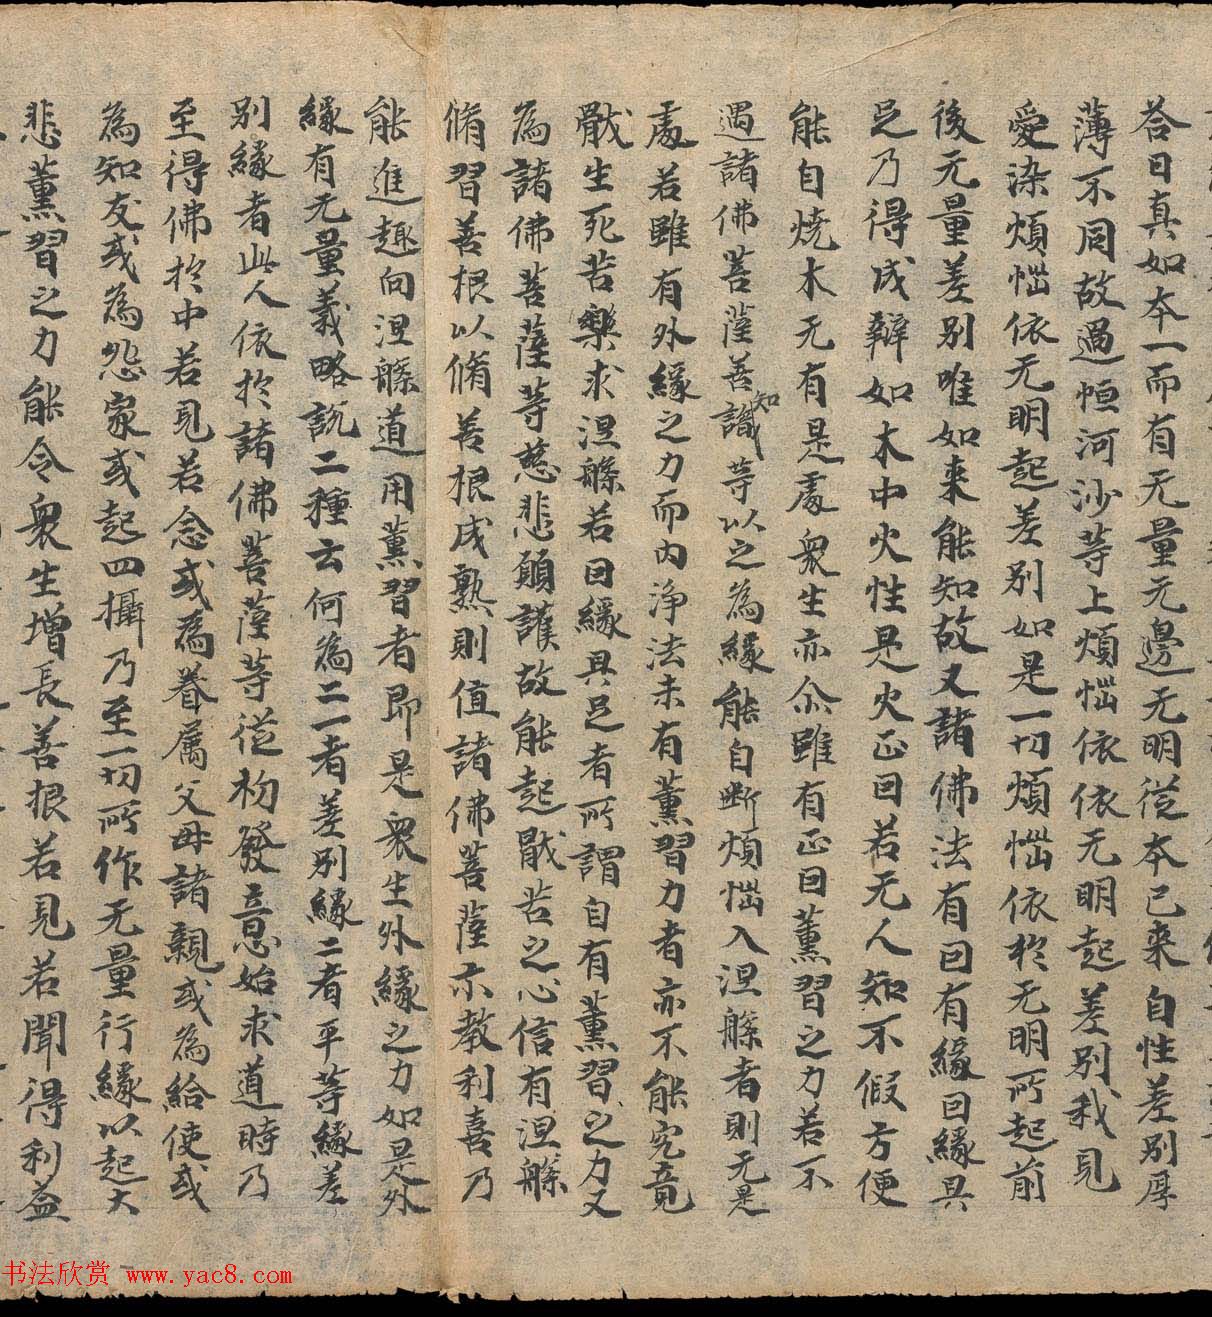 答曰真如本一而有无量无邊无明從本已来自性差別厚
薄不同故過恒河沙等上煩惱依依无明起差別我見
愛染煩惱依无明起差別如是一切煩惱依於无明所起前
後无量差別唯如来能知故又諸佛法有因有緣因緣具
足乃得成辦如木中火性是火正因若无人知不假方便
能自燒木无有是處衆生亦尒雖有正因薰習之力若不
遇諸佛菩薩善知識等以之為緣能自断煩惱入涅槃者則无是
處若雖有外緣之力而內淨法未有薰習力者亦不能究竟
猒生死苦樂求涅槃若因緣具足者所謂自有薰習之力又
為諸佛菩薩等慈悲願護故能起猒苦之心信有涅槃
脩習善根以脩善根成熟則值諸佛菩薩示教利喜乃
能進趣向涅槃道用薰習者即是衆生外緣之力如是外
緣有无量義略說二種云何為二一者差別緣二者平等緣差
別緣者此人依於諸佛菩薩等從初發意始求道時乃
至得佛於中若見若念或為眷属父母諸親或為給使或
為知友或為怨家或起四攝乃至一切所作无量行緣以起大
悲薰習之力能令衆生增長善根若見若聞得利益
书法欣赏 www.yac8.com